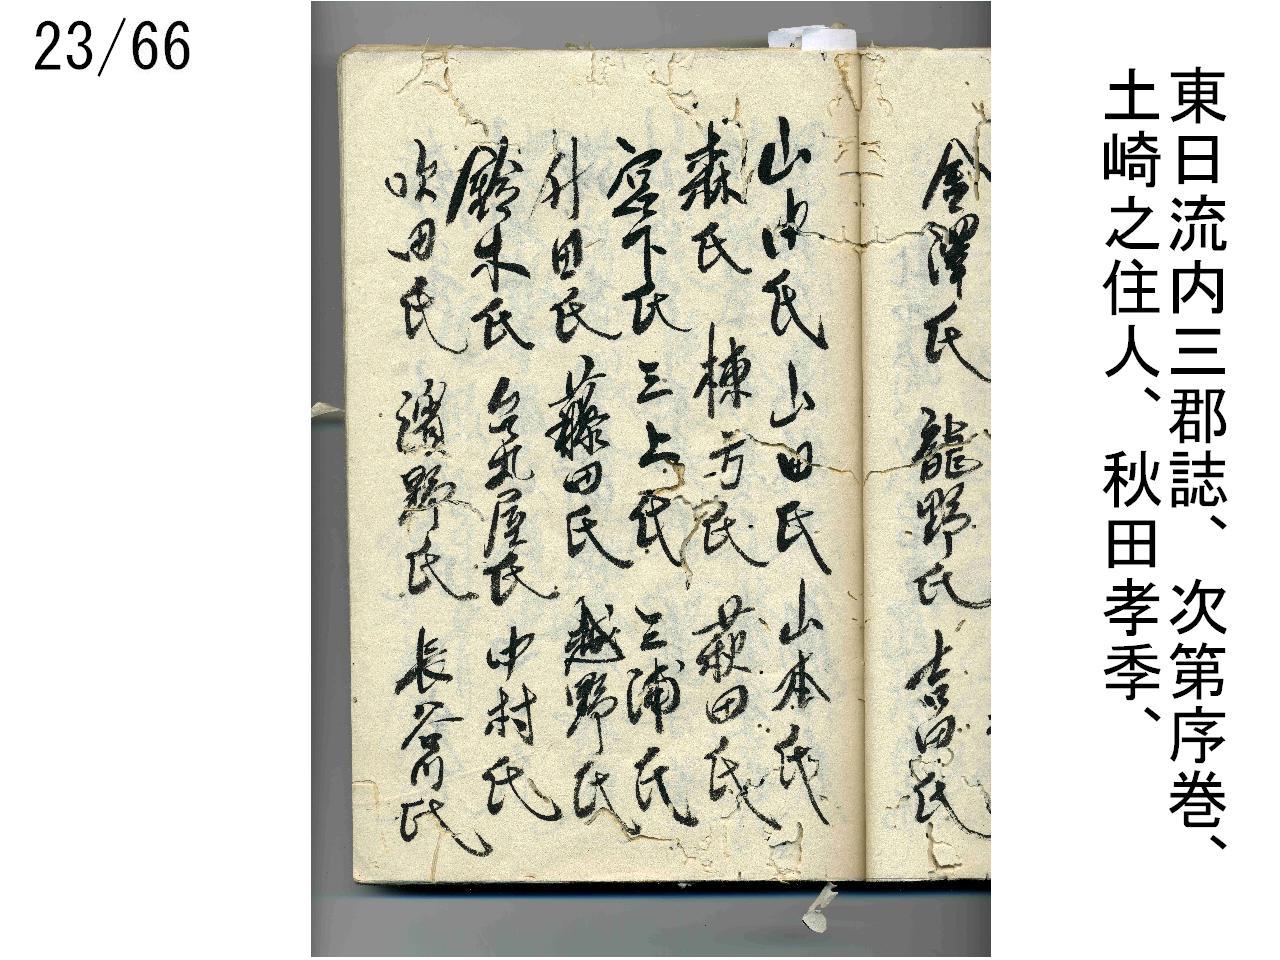 23/66
東日流内三郡誌、次第序巻、
土崎之住人、秋田孝季、
金澤氏 龍野氏 吉田氏
山内氏 山田氏 山本氏
森氏 棟方氏 萩田氏
宮下氏 三上氏 三浦氏
舛田氏 藤田氏 越野氏
鈴木氏 名丸屋氏 中村氏
吹田氏 濱野氏 長谷川氏